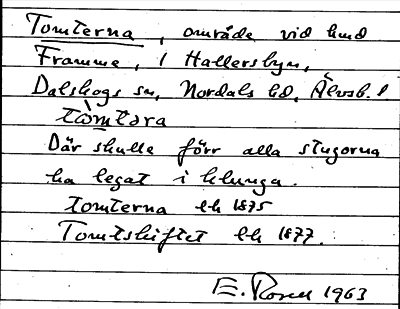 Tomterna, område vid hmd
Framme, i Hallersbyn,
Dalskogs sn, Nordals hd, Älvsb. l
tòmtəra
Där skulle förr alla stugorna
ha legat i klunga.
tomterna ek 1875
Tomtskiftet ek 1877.
E. Rosell 1963